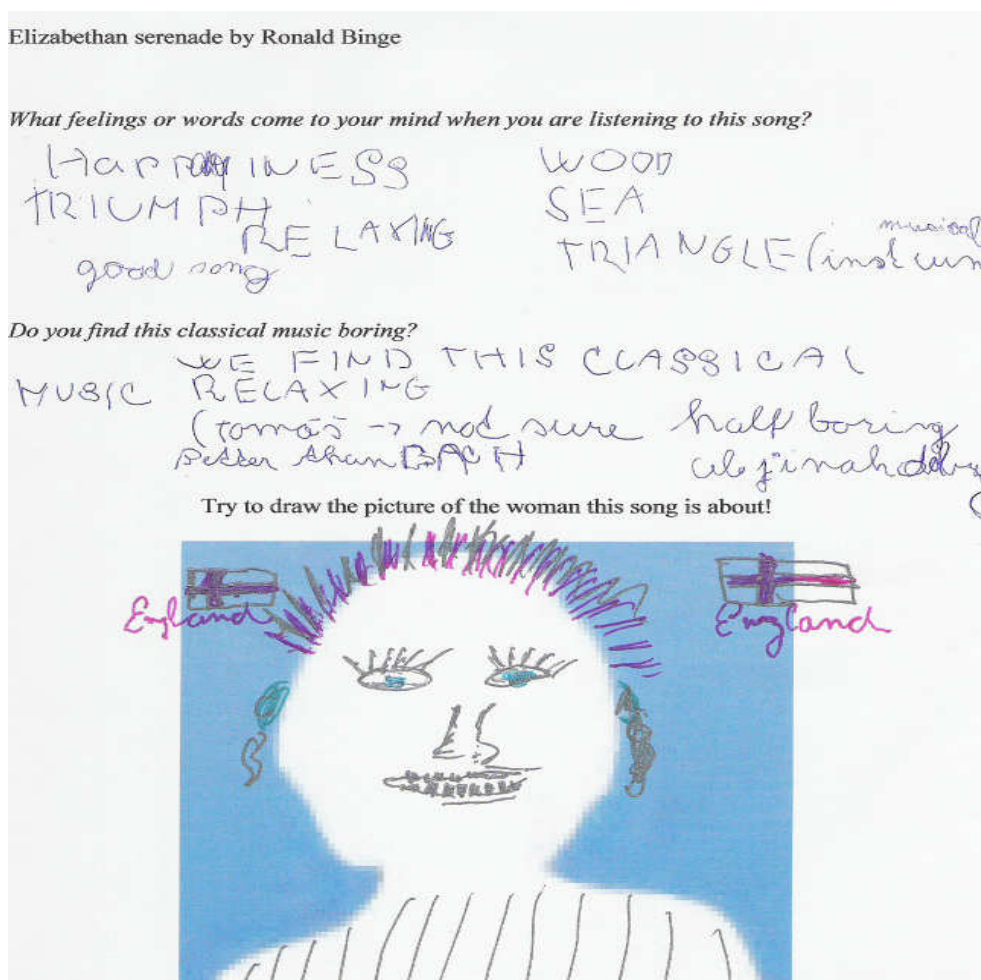 Elizabethan serenade by Ronald Binge
What feelings or words come to your mind when you are listening to this song?
HAPPINESS
WOOD
TRIUMPH
SEA
RELAXING
TRIANGLE (musical
good song
Do you find this classical music boring?
WE FIND THIS CLASSICAL
MUSIC RELAXING
(Tomáš → not sure half boring
better than BACH
Try to draw the picture of the woman this song is about!
England England